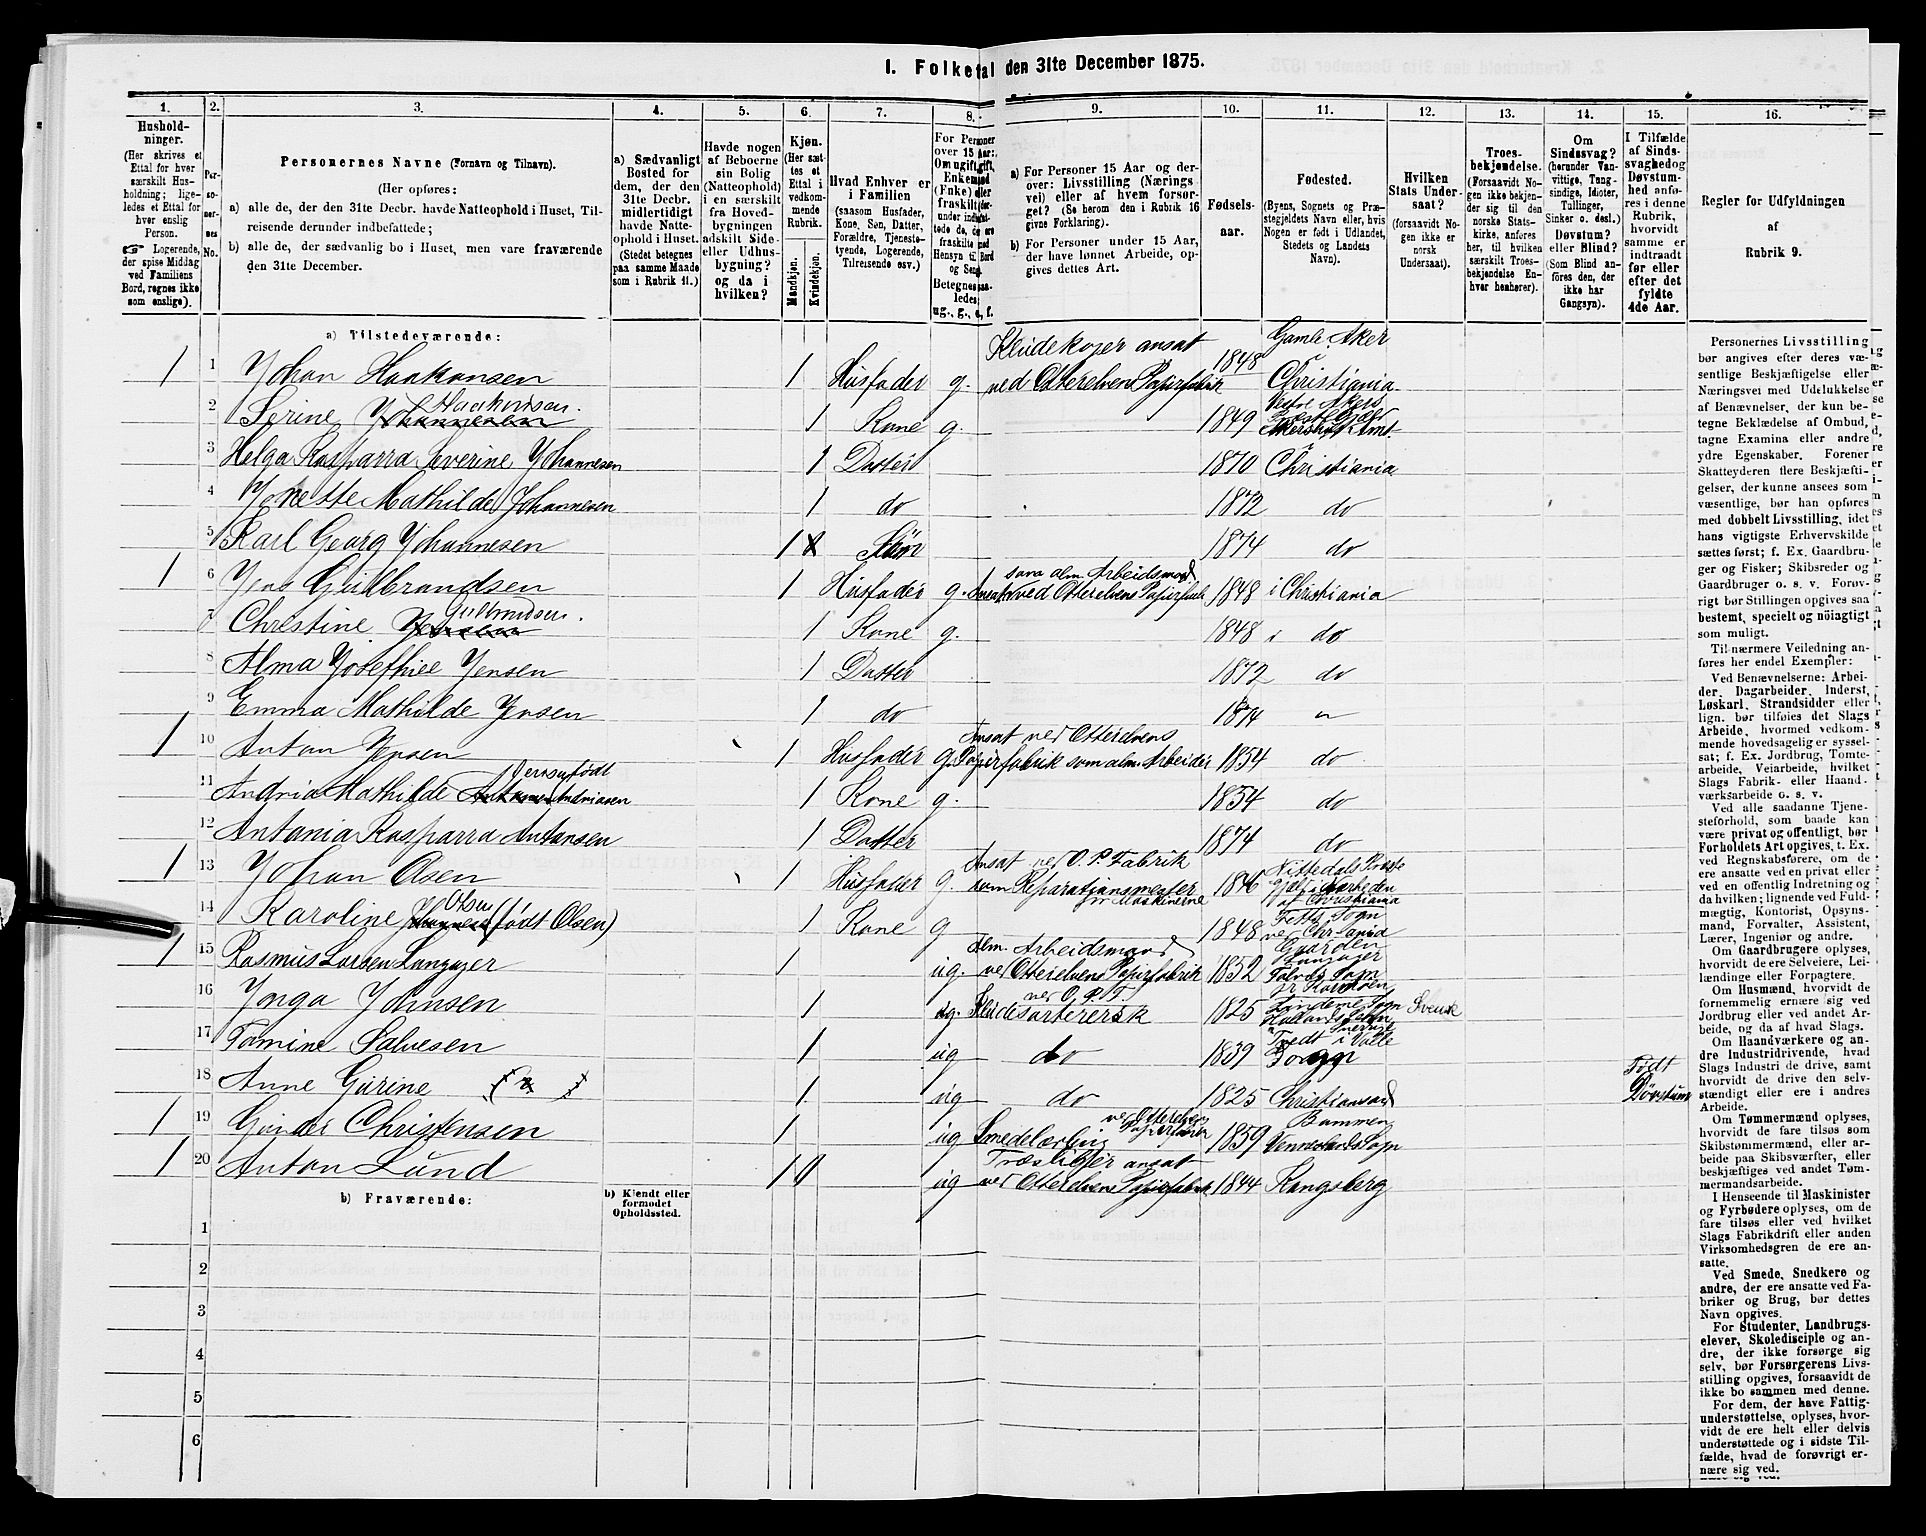 1. Folketal den 31te December 1875.
1. 2. 3. 4. 5. 6. 7. 8. 9. 10. 11. 12. 13. 14. 15. 16.
Hushold-
ninger.
(Her skrives et
Ettal for hver
særskilt Hus-
holdning; lige-
ledes et Ettal for
hver enslig
Person.
☞ Logerende,
der spise Middag
ved Familiens
Bord, regnes ikke
som enslige).
Per-
so-
ner-
nes
No.
Personernes Navne (Fornavn og Tilnavn).
(Her opføres:
a) alle de, der den 31te Decbr. havde Natteophold i Huset, Til-
reisende derunder indbefattede;
b) alle de, der sædvanlig bo i Huset, men vare fraværende
den 31te December.
a) Sædvanligt
Bosted for
dem, der den
31te Decbr.
midlertidigt
havde Natte-
ophold i Huset.
(Stedet betegnes
paa samme Maade
som i Rubrik 11.)
Havde nogen
af Beboerne
sin Bolig
(Natteophold)
i en særskilt
fra Hoved-
bygningen
adskilt Side-
eller Udhus-
bygning?
og da i
hvilken?
Kjøn.
(Her sæt-
tes et
Ettal i
vedkom-
mende
Rubrik.
Mandkjøn.
Kvindekjøn.
Hvad Enhver er
i Familien
(saasom Husfader,
Kone, Søn, Datter,
Forældre, Tjeneste-
tyende, Logerende,
Tilreisende osv.)
For Personer
over 15 Aar:
Om ugift, gift,
Enkemand
(Enke) eller
fraskilt
Betegnes saa-
ledes;
ug., g., e, f.
a) For Personer 15 Aar og der-
over: Livsstilling (Nærings
vei) eller af hvem forsør-
get? (Se herom den i Rubrik 16
givne Forklaring).
b) For Personer under 15 Aar,
der have lønnet Arbeide, op-
gives dettes Art.
Fødsels-
aar.
Fødested.
(Byens, Sognets og Præ-
stegjeldets Navn eller, hvis
Nogen er født i Udlandet,
Stedets og Landets
Navn).
Hvilken
Stats Under-
saat?
(forsaavidt No-
gen ikke er
norsk
Undersaat).
Troes-
bekjendelse.
(Forsaavidt No-
gen ikke bekjen-
der sig til den
norske Stats-
kirke, anføres
her, til hvilken
særskilt Troes-
bekjendelse En-
hver henhører).
Om
Sindssvag?
(herunder Van-
vittige, Tung-
sindige, Idioter,
Tullinger,
Sinker o. desl.)
Døvstum?
eller Blind?
(Som Blind an-
føres den, der
ikke har
Gangsyn).
I Tilfælde
af Sinds-
svaghed og
Døvstum-
hed anfø-
res i denne
Rubrik,
hvorvidt
samme er
indtraadt
før eller
efter det
fyldte
4de Aar.
Regler for Udfyldningen
af
Rubrik 9.
a) Tilstedeværende:
1 1 Johan Haakansen 1 Husfader g. Kludekoger ansat ved Otterelvens Papirfabrik 1848 Gamle Aker Christiania
2 Serine Johannesen Haakansen. 1 Kone g. 1849 Vestre Akers Akershus Amt.
3 Helga Kasparra Severine Johannesen 1 Datter 1870 Christiania
4 Jonette Mathilde Johannesen 1 do 1872 do
5 Karl Georg Johannesen 1 Søn 1874 do
1 6 Jens Gulbrandsen 1 Husfader g. Ansat ved Otterelvens Papirfabr. som alm. Arbeidsmand 1848 i Christiania
7 Christine Jensen Gulbrandsen. 1 Kone g. 1848 i do
8 Alma Josefhie Jensen 1 Datter 1872 do
9 Emma Mathilde Jensen 1 do 1874 "
1 10 Anton Jensen 1 Husfader g. Ansat ved Otterelvens Papirfabrik som alm. Arbeider 1854 do
11 Andria Mathilde Jensen født Andriasen 1 Kone g. 1854 do
12 Antonia Kasparra Antonsen 1 Datter 1874 do
1 13 Johan Olsen 1 Husfader g. Ansat ved O. P. Fabrik som Reparationsmester for Maskinerne 1846 Nittedals Præste gjæld i Nærheden af Christiania
14 Karoline Olsen (født Olsen) 1 Kone g 1848 Fetts Sogn ved Chr.iania
1 15 Rasmus Larsen Langager 1 ug. Alm. Arbeidsmand ved Otterelvens Papirfabrik 1852 Gaarden
16 Inga Johnsen 1 ug. Kludesorterersk ved O. P. F. 1825 Svensk
17 Tomine Salvesen 1 ug do 1839 Tvedt i Valle
18 Anne Gurine 1 ug do 1825 Christiansand Født Døvstum
1 19 Gunder Christensen 1 ug Smedelærling ved Otterelvens Papirfabrik 1859 Bommen Vennesla Sogn
1 20 Anton Lund 1 ug Træsliber ansat ved Otterelvens Papirfabrik 1844 Kongsberg
b) Fraværende:
b) Kjendt eller
formodet
Opholdssted.
1
2
3
4
5
6
Personernes Livsstilling
bør angives efter deres væ-
sentlige Beskjæftigelse eller
Næringsvei med Udelukkelse
af Benævnelser, der kun be-
tegne Beklædelse af Ombud,
tagne Examina eller andre
ydre Egenskaber. Forener
Skatteyderen flere Beskjæfti-
gelser, der kunne ansees som
væsentlige, bør han opføres
med dobbelt Livsstilling, idet
hans vigtigste Erhvervskilde
sættes først; f. Ex. Gaardbru-
ger og Fisker; Skibsreder og
Gaardbruger o. s. v. Forøv-
rigt bør Stillingen opgives saa
bestemt, specielt og nöiagtigt
som muligt.
Til nærmere Veiledning an-
føres her endel Exempler:
Ved Benævnelserne: Arbei-
der, Dagarbeider, Inderst,
Løskarl, Strandsidder eller
lign. bør tilføies det Slags
Arbeide, hvormed vedkom-
mende hovedsagelig er syssel-
sat; f. Ex. Jordbrug, Tomte-
arbeide, Veiarbeide, hvilket
Slags Fabrik- eller Haand-
værksarbeide o. s. v.
Ved alle saadanne Tjene-
steforhold, som baade kan
være privat og offentligt, bør
Forholdets Art opgives, t. Ex.
ved Regnskabsførere, om de
ere ansatte ved en privat eller
ved en offentlig Indretning og
da hvilken; lignende ved Fuld-
mægtig, Kontorist, Opsyns-
mand, Forvalter, Assistent,
Lærer, Ingeniør og andre.
Om Gaardbrugere oplyses,
hvorvidt de ere Selveiere, Lei-
lændinge eller Forpagtere.
Om Husmænd, hvorvidt de
fornemmelig ernære sig ved
Jordbrug eller ved andet Ar-
beide, og da af hvad Slags.
Om Haandværkere og an-
dre Industridrivende, hvad
Slags Industri de drive, samt
hvorvidt de drive den selv-
stændigt eller ere i andres
Arbeide.
Om Tømmermænd oplyses,
hvorvidt de fare tilsøs som
Skibstømmermænd, eller ar-
beide paa Skibsværfter, eller
beskjæftiges ved andet Tøm-
mermandsarbeide.
I Henseende til Maskinister
og Fyrbødere oplyses, om de
fare tilsøs eller ved hvilket
Slags Fabrikdrift eller anden
Virksomhedsgren de ere an-
satte.
Ved Smede, Snedkere og
andre, der ere ansatte ved Fa-
briker og Brug, bør dettes
Navn opgives.
For Studenter, Landbrugs-
elever, Skoledisciple og an-
dre, der ikke forsørge sig
selv, bør Forsørgerens Livs-
stilling opgives, forsaavidt de
ikke bo sammen med denne.
For dem, der have Fattig-
understøttelse, oplyses, hvor-
vidt de ere helt eller delvis
understøttede og i sidste Til-
fælde, hvad de forøvrigt er-
nære sig ved.